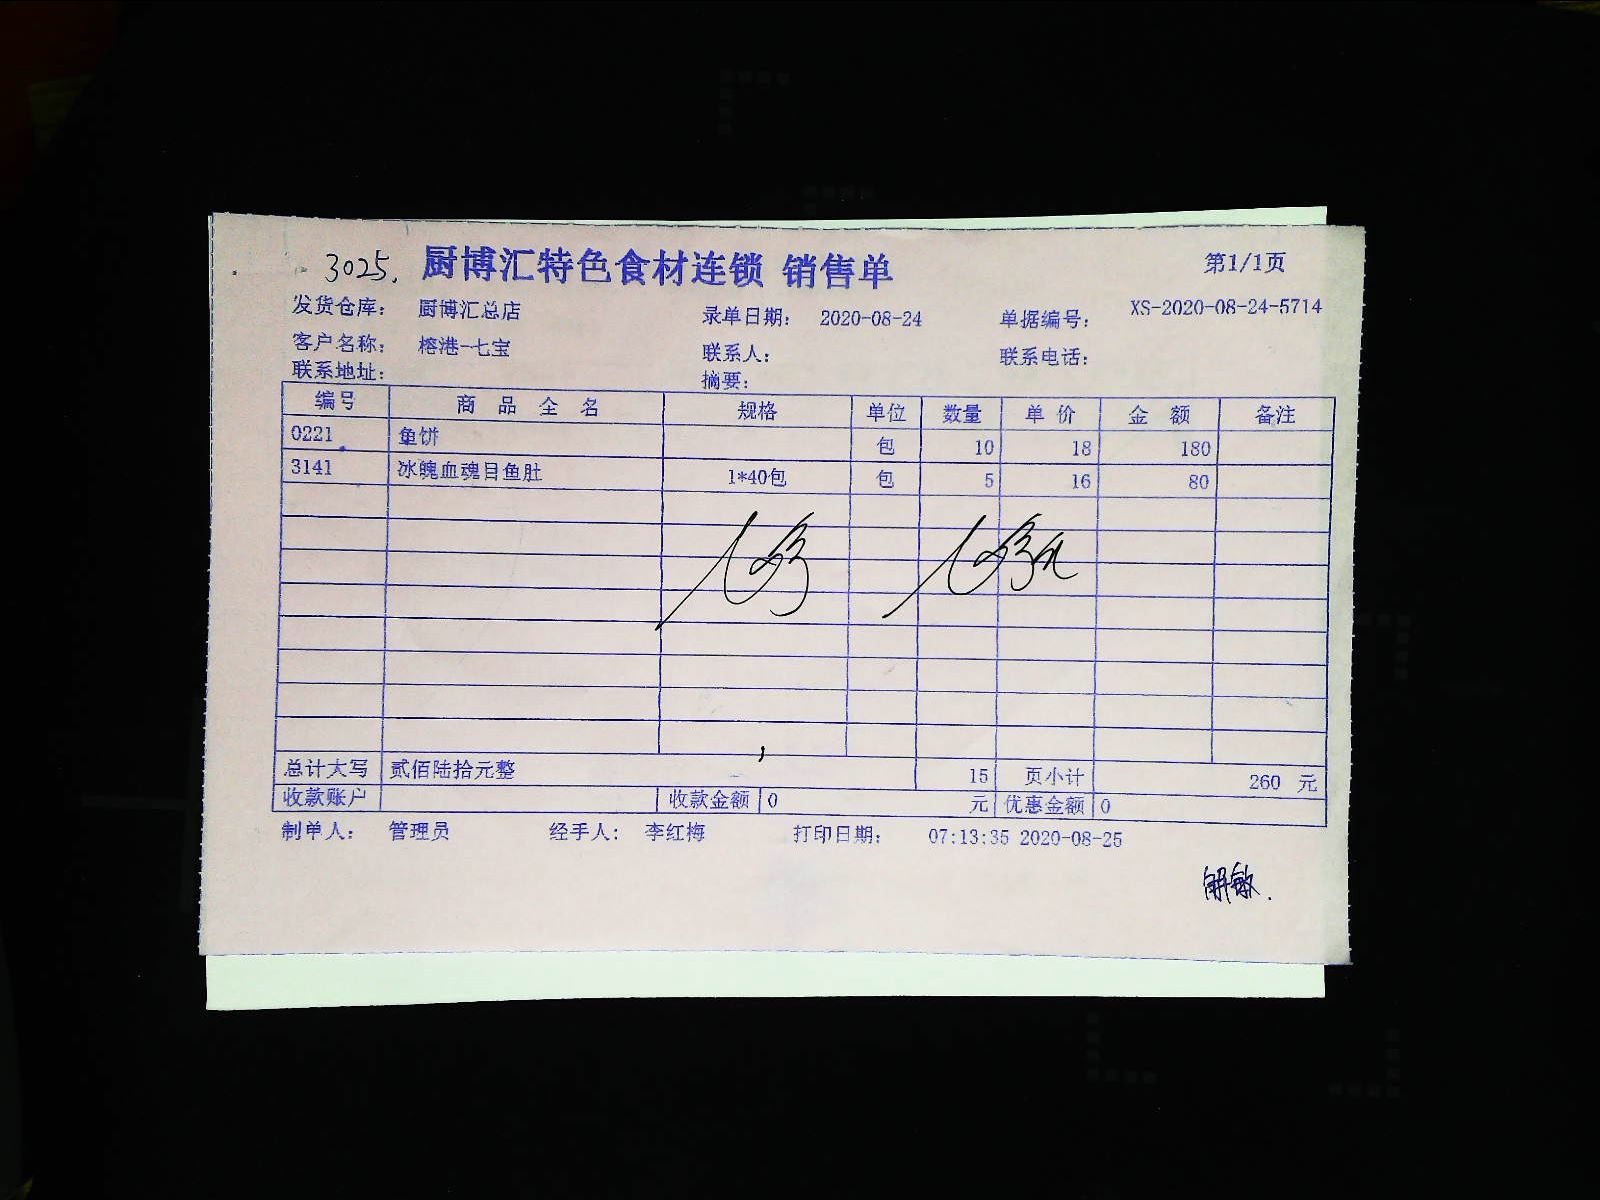 3025. 厨博汇特色食材连锁 销售单 第1/1页
发货仓库： 厨博汇总店 录单日期： 2020-08-24 单据编号： XS-2020-08-24-5714
客户名称： 榕港-七宝 联系人： 联系电话：
联系地址： 摘要：
编号 商品全名 规格 单位 数量 单价 金额 备注
0221 鱼饼 包 10 18 180
3141 冰魄血魂目鱼肚 1*40包 包 5 16 80
总计大写 贰佰陆拾元整 15 页小计 260 元
收款账户 收款金额 0 元 优惠金额 0
制单人： 管理员 经手人： 李红梅 打印日期： 07:13:35 2020-08-25
解敏.